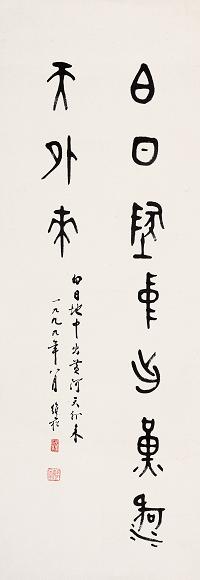 白日墬中出黄河
天外来
白日地中出黄河天外来
一九九九年八月